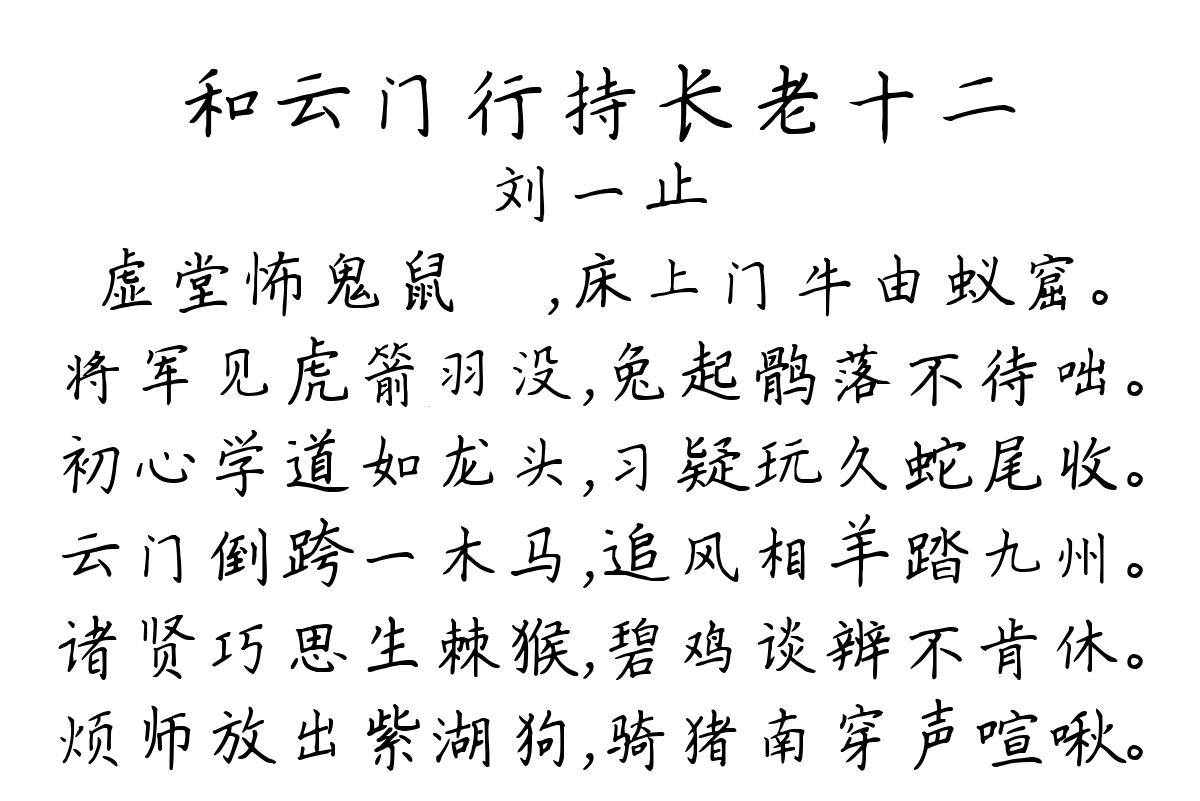 和云门行持长老十二
刘一止
虚堂怖鬼鼠 ,床上门牛由蚁窟。
将军见虎箭羽没,兔起鹘落不待咄。
初心学道如龙头,习疑玩久蛇尾收。
云门倒跨一木马,追风相羊踏九州。
诸贤巧思生棘猴,碧鸡谈辨不肯休。
烦师放出紫湖狗,骑猪南穿声喧啾。